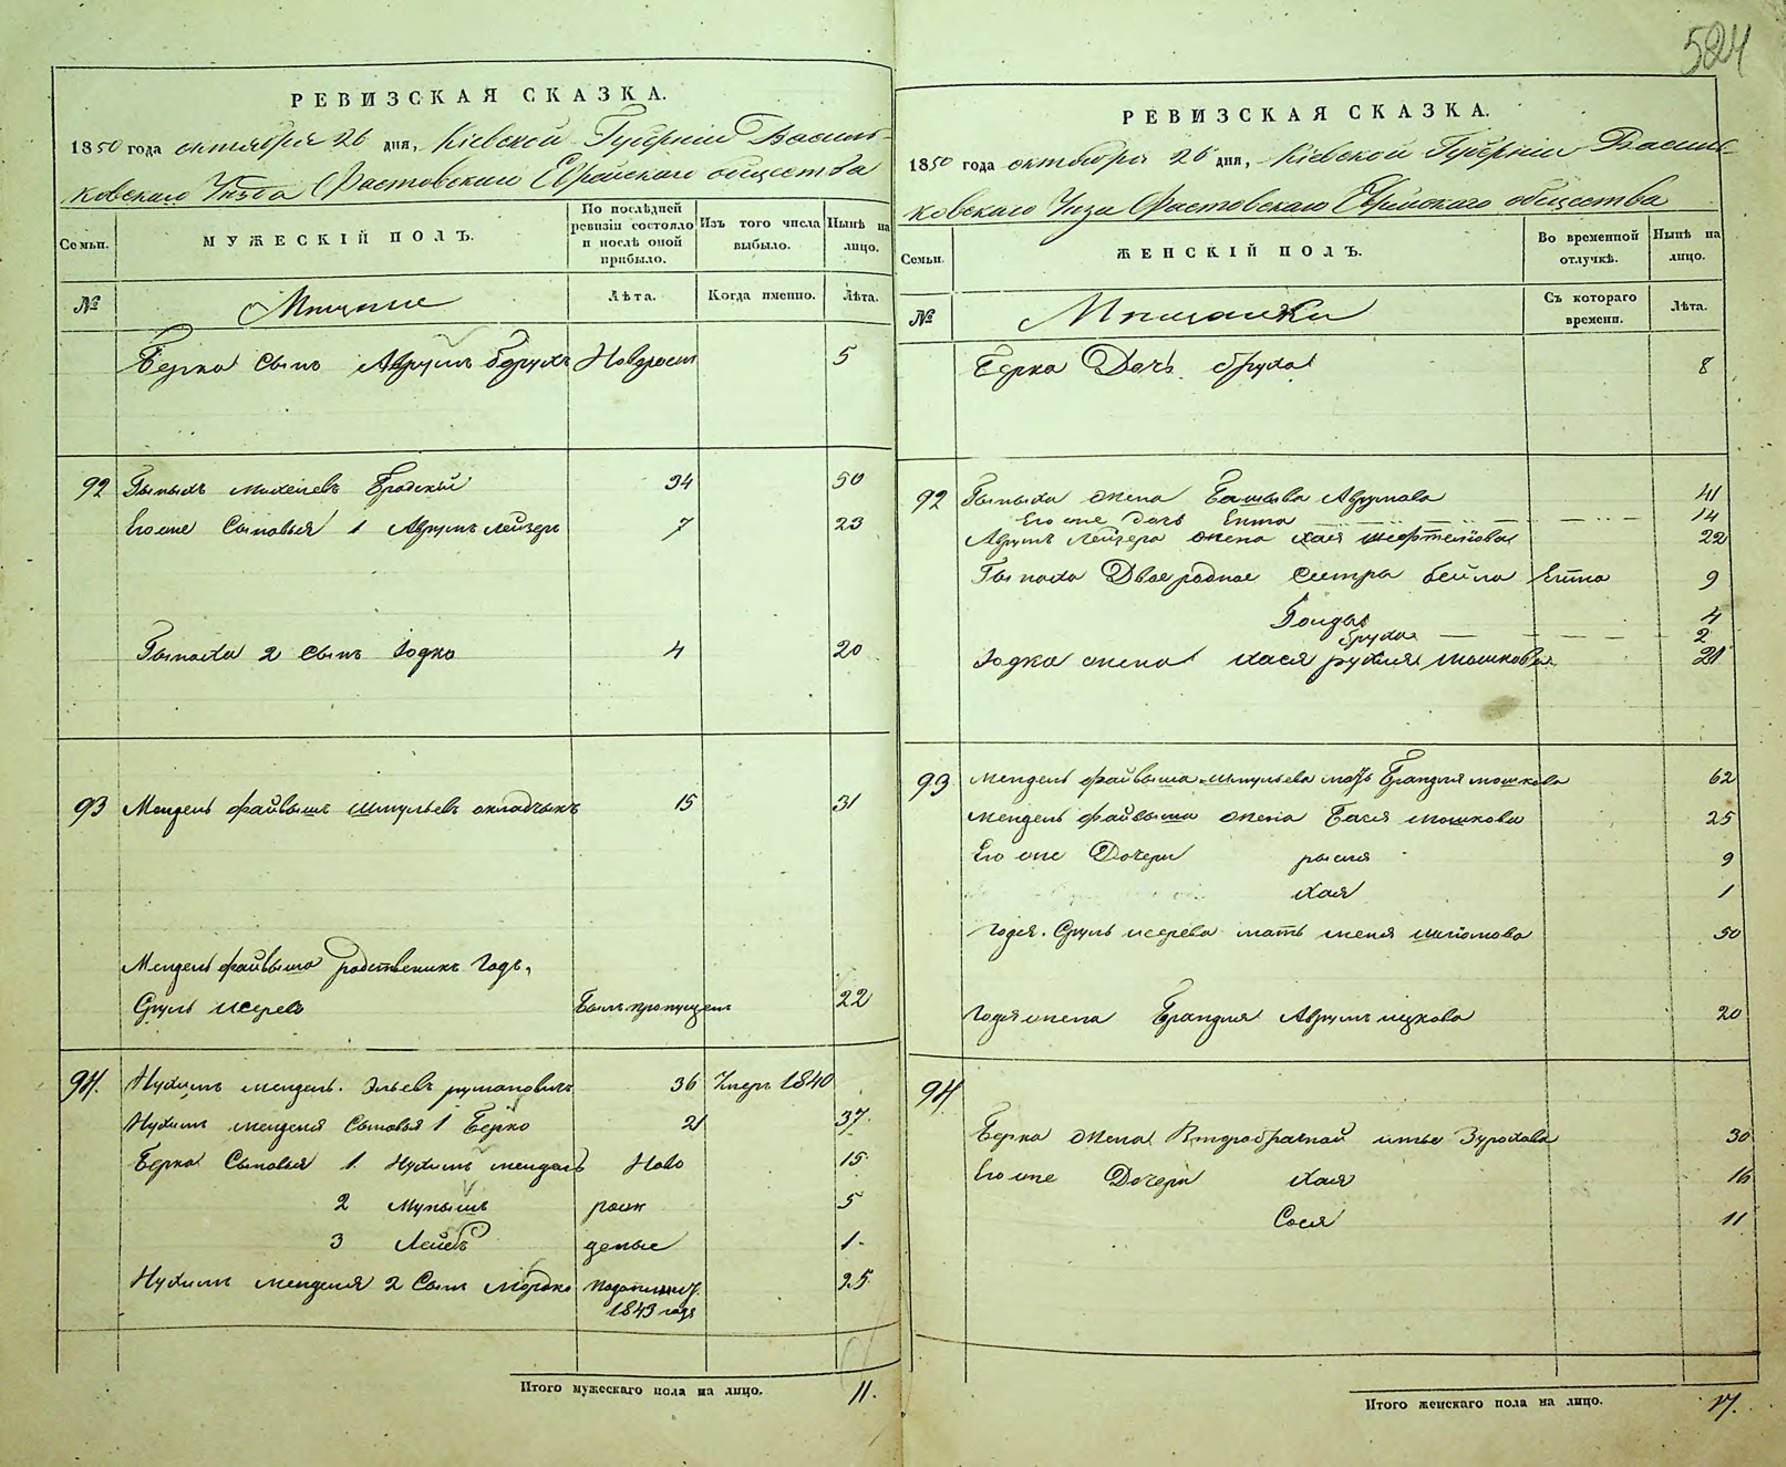 524
РЕВИЗСКАЯ СКАЗКА.
1850 года октября 26 дня, Кіевской Губерніи Василь-
ковскаго Уѣзда Фастовскаго Еврейскаго общества
Семьи.
МУЖЕСКІЙ ПОЛЪ.
По послѣдней ревизіи состояло и послѣ оной прибыло.
Изъ того числа выбыло.
Нынѣ на лицо.
№
Мещане
Лѣта.
Когда именно.
Лѣта.
Берка сынъ Аврумъ Борухъ Новорост 5
92 Пынхасъ Бродскій 34 50
Его же Сыновья 1 Аврумъ Лейзеръ 7 23
2 сынъ Іодко 4 20
93 Мендель Файвышъ Шмульевъ окладчыкъ 15 31
Мендель Файвыша родственикъ Годъ,
Сруль Исеревъ Былъ пропущенъ 22
94. Нухимъ Мендель. Эльевъ 36 Умеръ 1840
Нухимъ Менделя Сыновья 1 Берко 21 37
Берка Сыновья 1 Нухимъ Мендель Ново 15
2 Мунышъ рож 5
3 Лейбъ деные 1
Нухимъ Менделя 2 Сынъ Мордко 25
1843 года
Итого мужескаго пола на лицо. 11.
РЕВИЗСКАЯ СКАЗКА.
1850 года октября 26 дня, Кіевской Губерніи Василь-
ковскаго Уезда Фастовскаго Еврейскаго общества
Семьи.
ЖЕНСКІЙ ПОЛЪ.
Во временной отлучкѣ.
Нынѣ на лицо.
№
Мещанки
Съ котораго времени.
Лѣта.
Берка Дочь Бруха 8
92 жена Башыва Аврумова 41
Его же дочь Ента 14
Аврумъ Лейзера жена Хая 22
Двоеродные Сестры Бейла Ента 9
Голда 4
Бруха 2
Іодка жена Хася Рухля Мошкова 21
93 Мендель Файвыша Шмульева мать Брандля Мошкова 62
Мендель Файвыша жена Бася Мошкова 25
Его же Дочери Рыся 9
Хая 1
Годя. Сруль Исерева мать Шлiомова 50
Годя жена Брандля Аврумъ Ицкова 20
94
Берка жена Второбрачная 30
Его же Дочери Хая 16
Сося 11
Итого женскаго пола на лицо. 17.